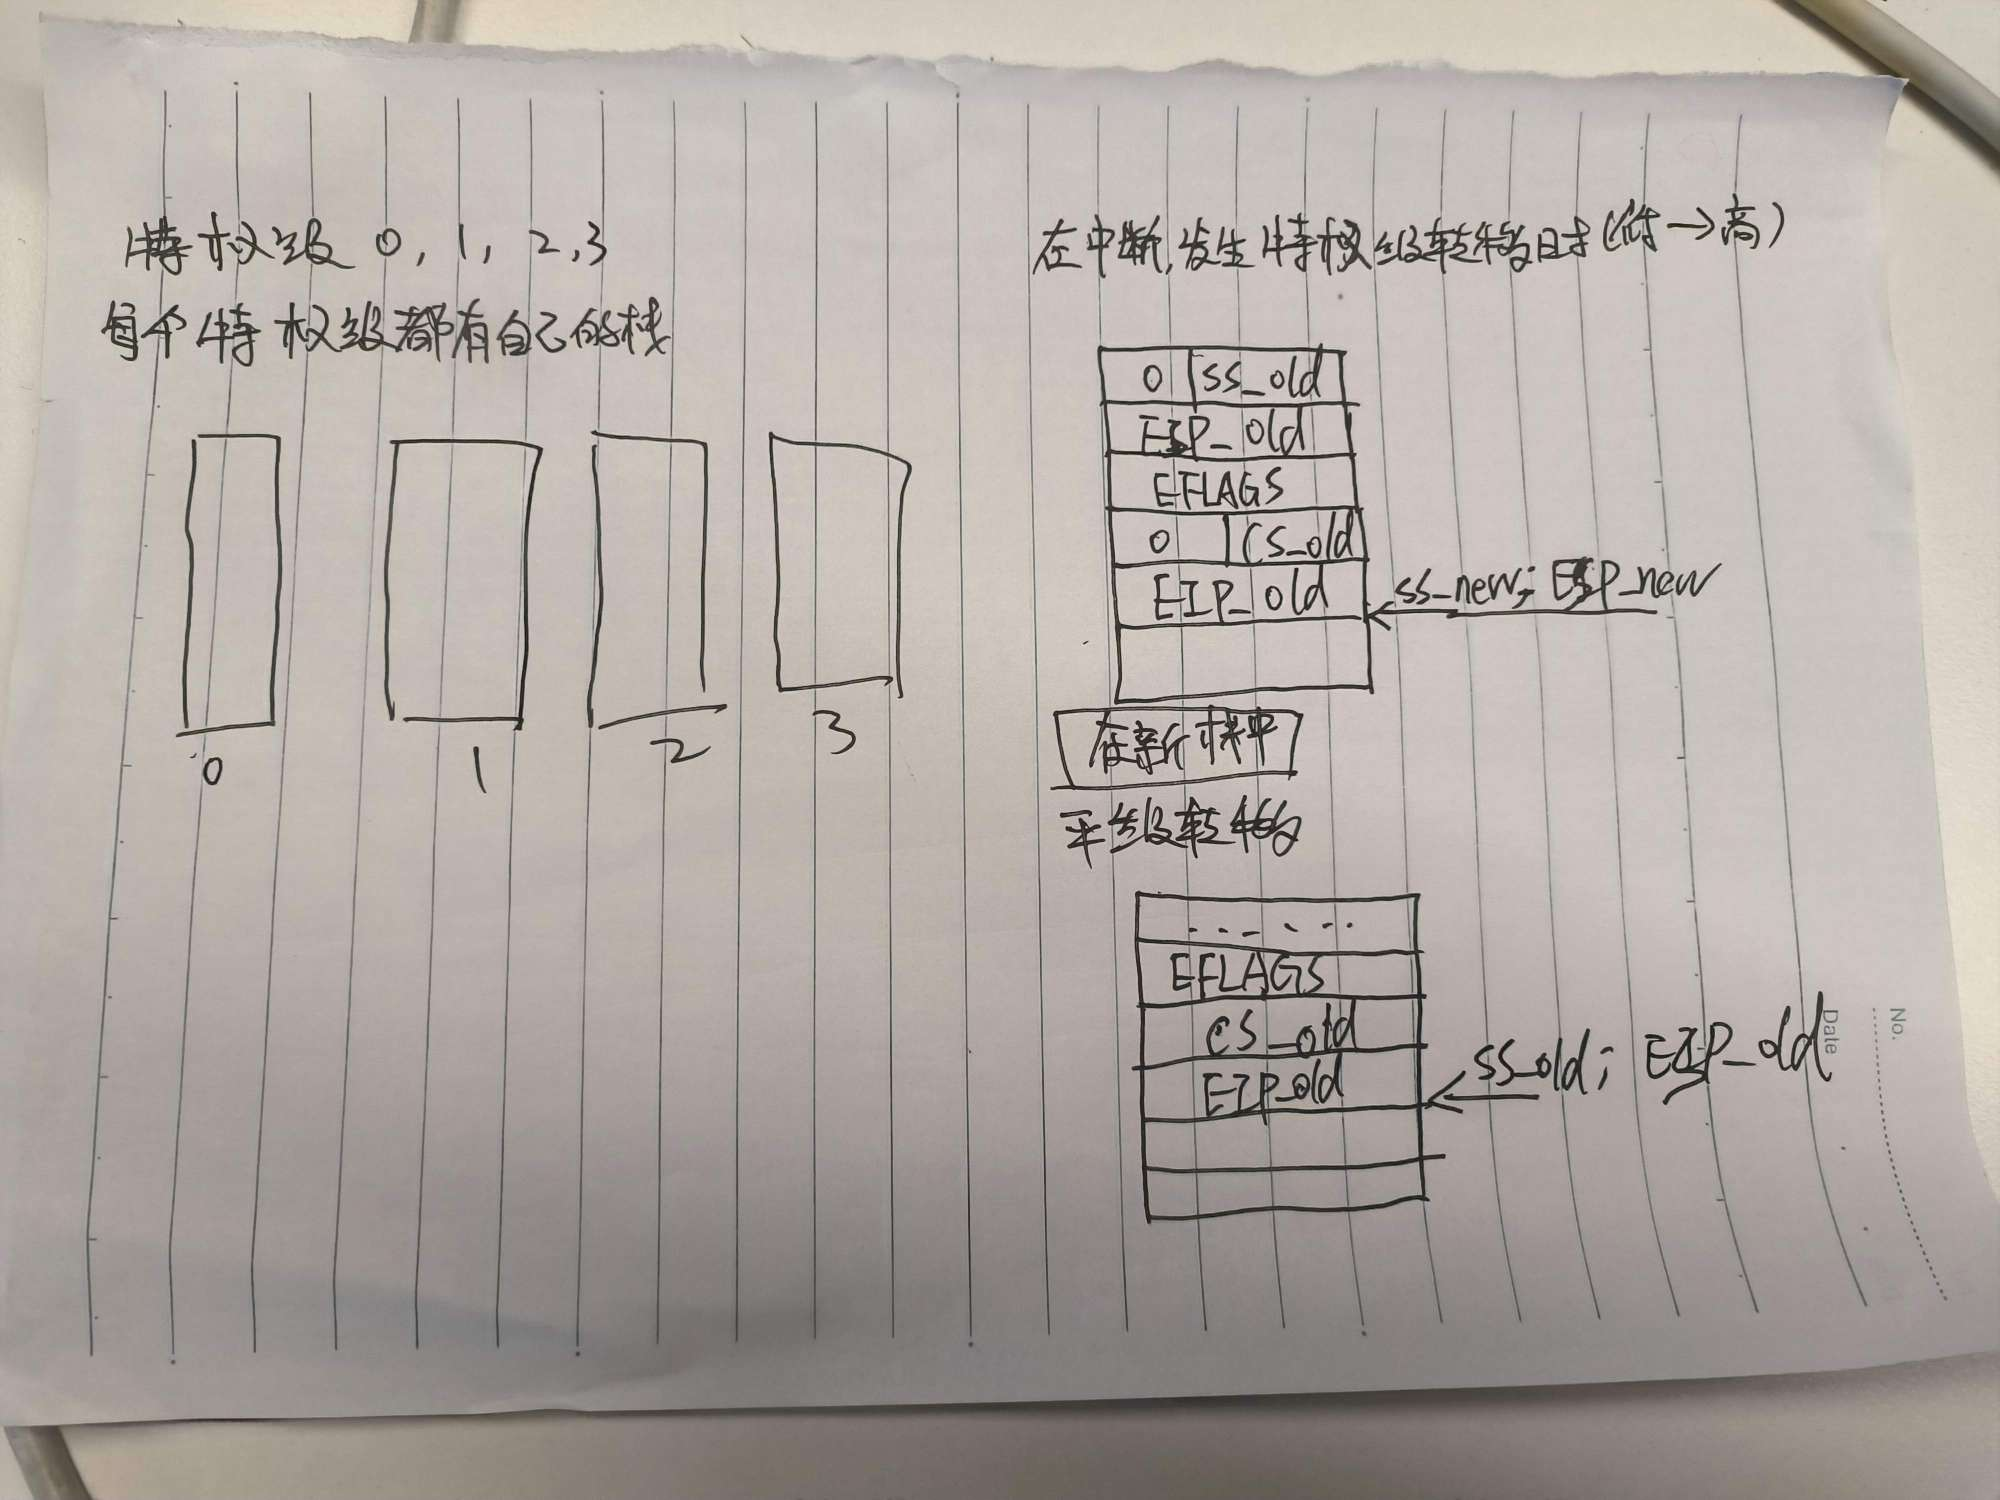 特权级 0, 1, 2, 3
每个特权级都有自己的栈
0
1
2
3
在中断,发生特权级转移时(低→高)
0 SS_old
ESP_old
EFLAGS
0 CS_old
EIP_old
SS_new; ESP_new
在新栈中
平级转移
......
EFLAGS
CS_old
EIP_old
SS_old; EIP_old
No.
Date